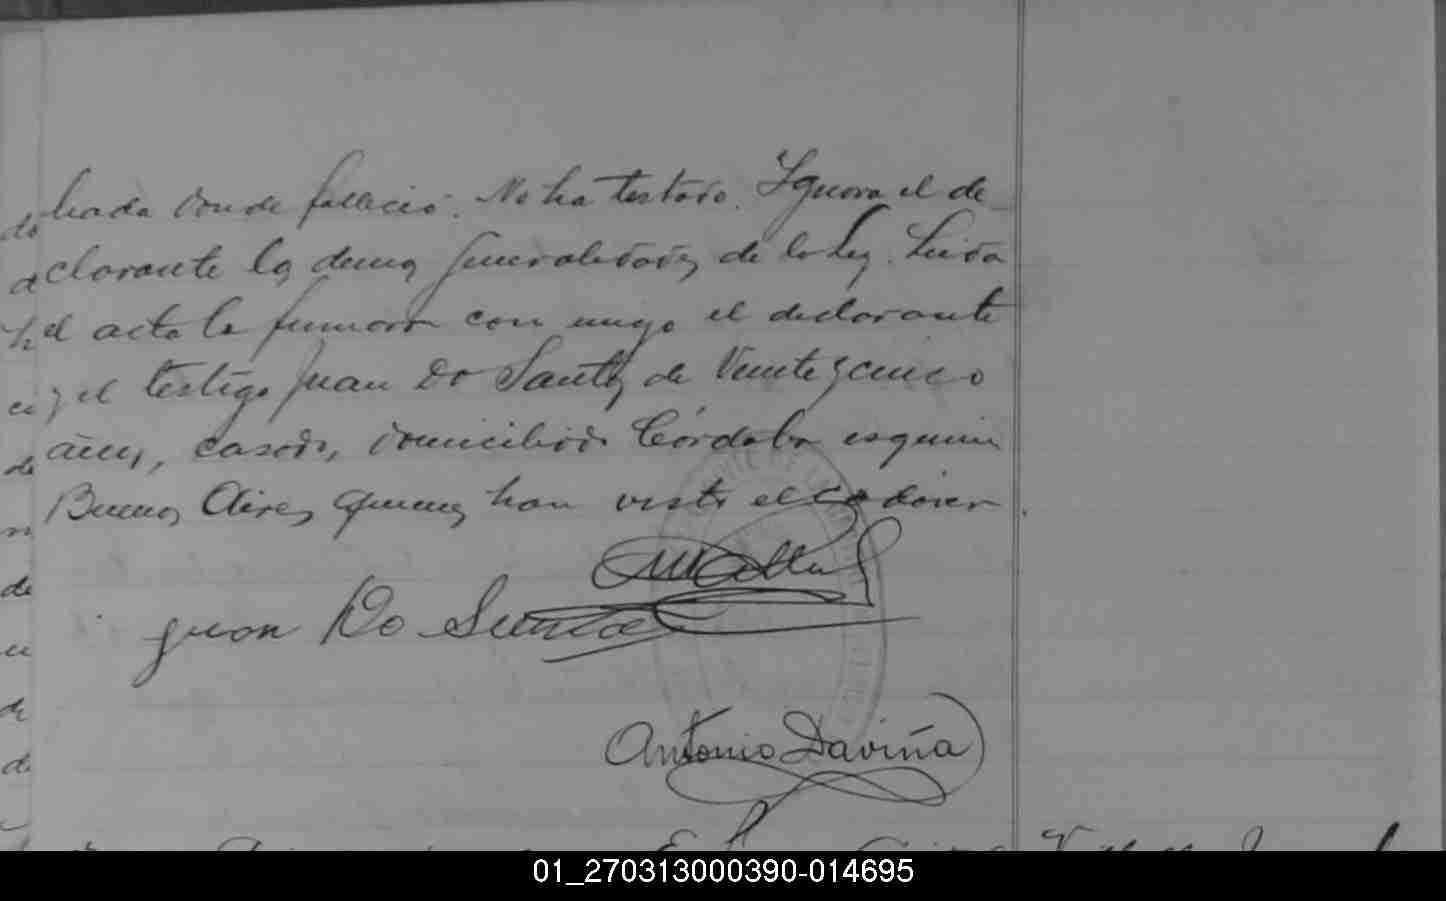 liado donde falleció. No ha testado. Ignora el de-
clarante las demas generalidades de la ley. Leida
el acta la firmaron con migo el declarante
y el testigo Juan Do Santos de Veinte y cinco
años, casado, domiciliado Córdoba esquina
Buenos Aires quienes han visto el cadáver.
Juan Do Santos
Antonio Daviña
01_270313000390-014695